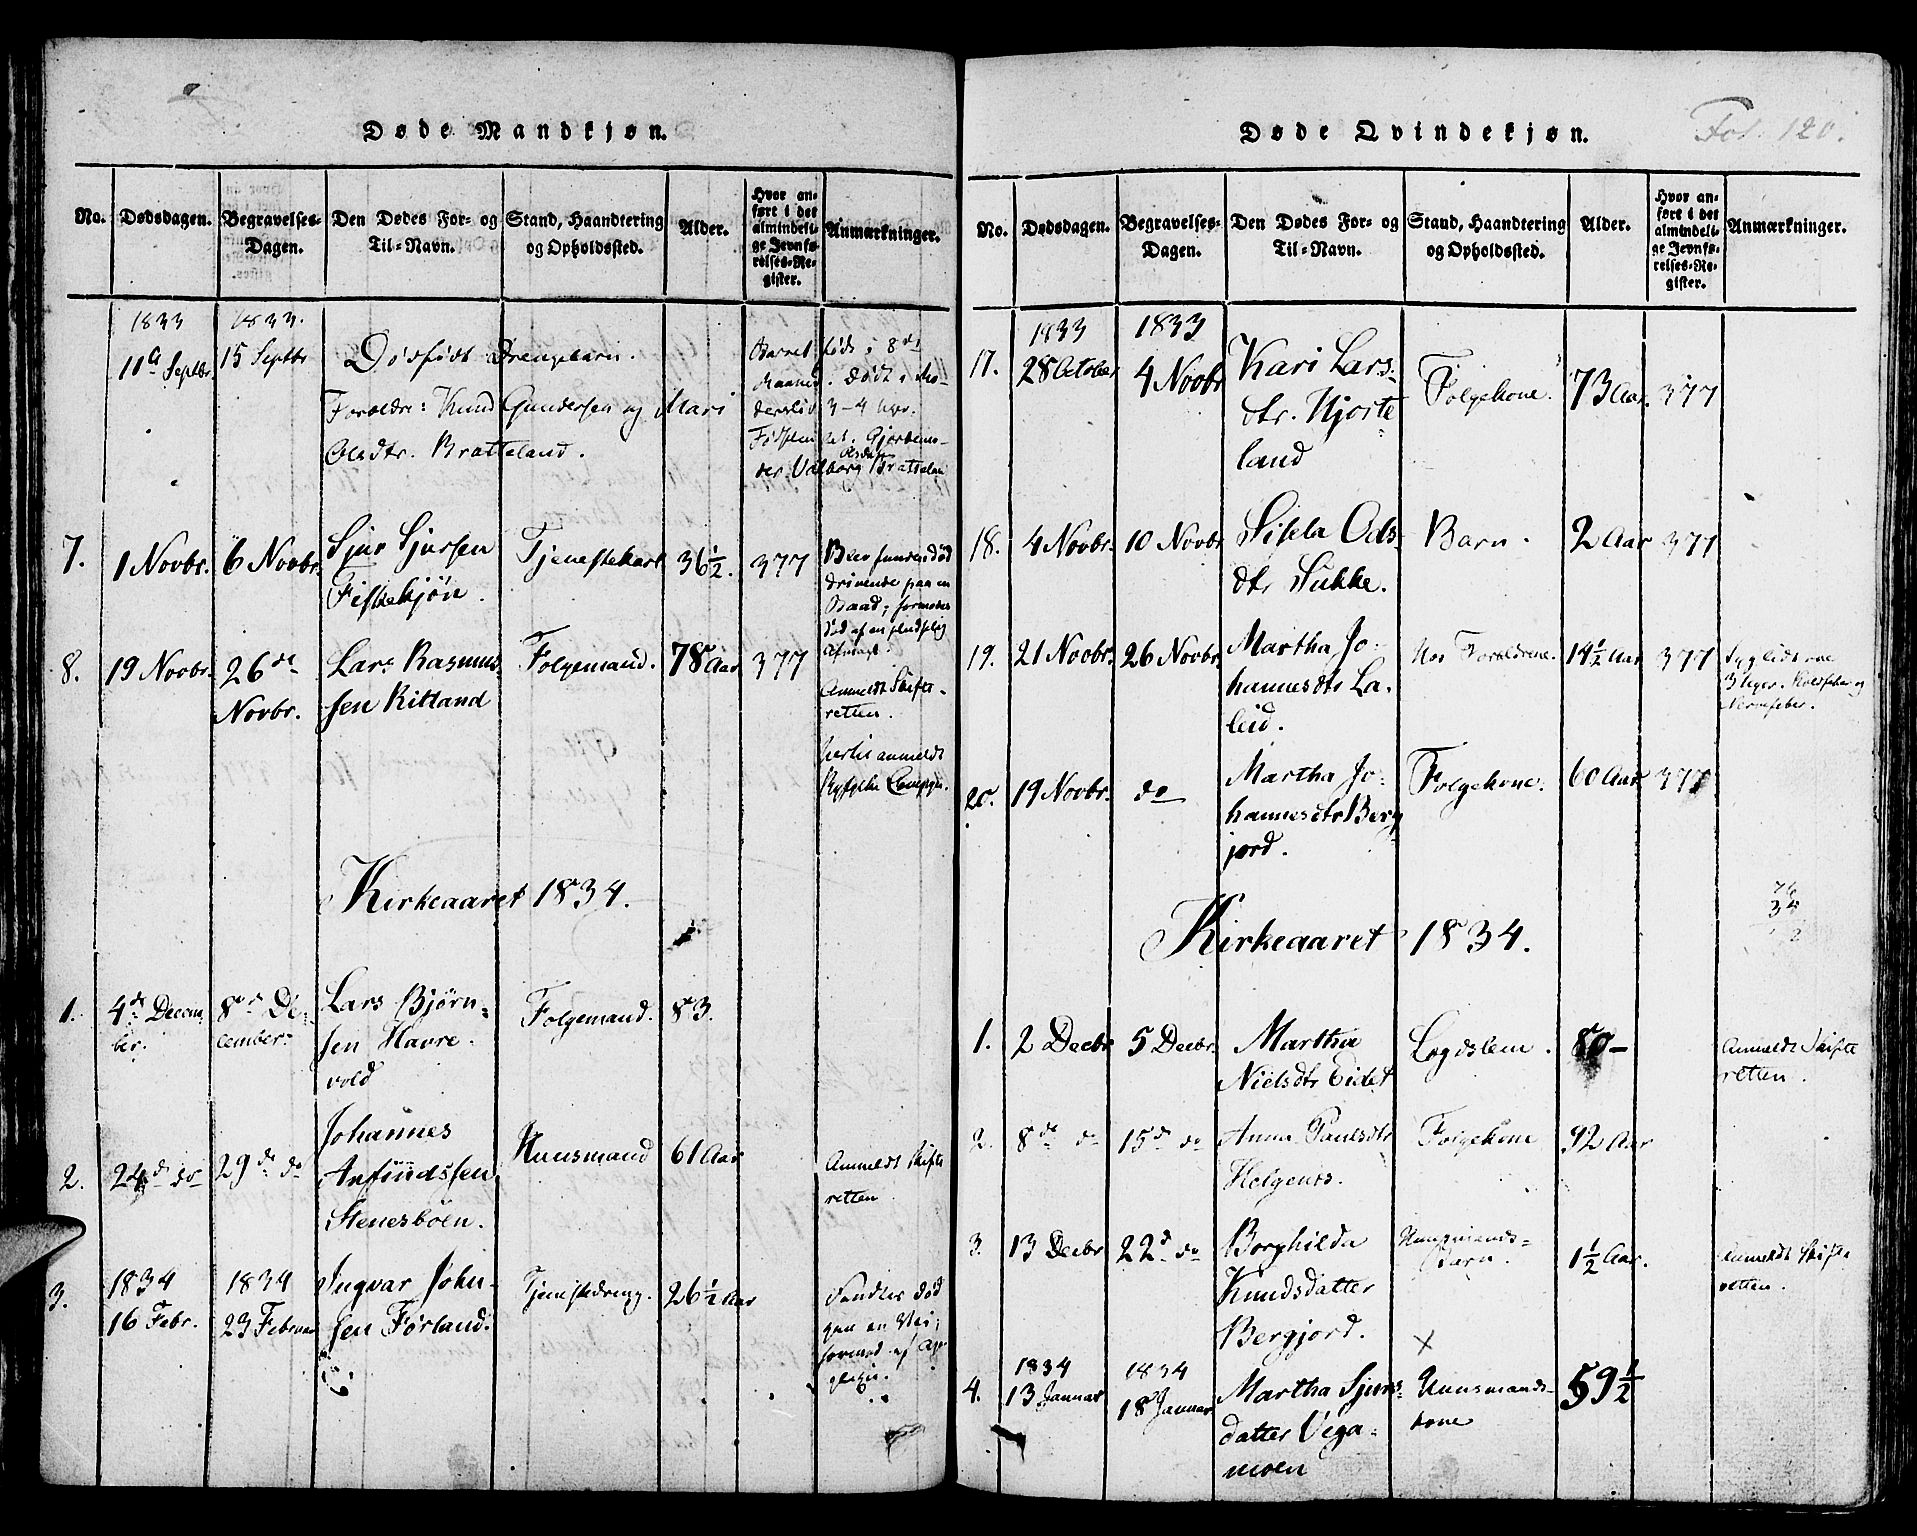 Døde Mandkjøn.
No.
Dødsdagen.
Begravelses-
Dagen.
Den Dødes For- og
Til-Navn.
Stand, Haandtering
og Opholdssted.
Alder.
Hvor an-
ført i det
almindeli-
ge Jevnfø-
relses-Re-
gister.
Anmærkninger.
1833
1833.
11te Septbr.
15 Septbr
Dødfødt Drengebarn.
Forældre: Knud Gundersen og Mari
Olsdtr. Bratteland.
Barnet født i 8de
Maaned. Dødt i Mo-
dersliv 3-4 Uger.
der Valborg Olsdatter Brattelan
7.
1 Novbr.
6 Novbr.
Sjur Sjursen
Fiskekjön.
Tjenestekarl
36½.
377
Blev funden død
drivende paa en
Baad; formodes
død af en pludselig
Afmagt.
8.
19 Novbr.
26de
Novbr.
Lars Rasmus-
sen Ritland
Folgemand.
78 Aar
377
Anmeldt Skifte-
retten.
hertil anmeldt
Kirkeaaret 1834.
1.
4de Decem-
ber.
8de De-
cember.
Lars Bjørn-
sen Havre-
vold
Folgemand.
83.
2.
24de do
29de do
Johannes
Anfindssen
Stenesböen.
Huusmand
61 Aar
Anmeldt Skifte
retten
3.
1834
16 Febr.
1834
23 Februar
Ingvar John-
sen Førland.
Tjenstedreng.
26½ Aar
Fandtes død
paa en Vei;
formod. af Apo-
plexie.
Døde Qvindekjøn.
Fol. 120.
No.
Dødsdagen.
Begravelses-
Dagen.
Den Dødes For- og
Til-Navn.
Stand, Haandtering
og Opholdssted.
Alder.
Hvor an-
ført i det
almindeli-
ge Jevnfø-
relses-Re-
gister.
Anmærkninger.
1833
1833
17.
28 October
4 Novbr
Kari Lars-
dtr. Hjorte-
land
Folgekone.
73 Aar.
377
18.
4 Novbr.
10 Novbr
Sisela Ods-
dtr Sukke.
Barn.
2 Aar
377
19.
21 Novbr.
26 Novbr.
Martha Jo-
hannesdtr La-
leid.
Hos Forældrene.
14½ Aar
377
Syg lidt over
3 Uger. Koldfeber og
Nervefeber.
20.
19 Novbr.
do
Martha Jo-
hannesdtr Berg-
jord.
Folgekone.
60 Aar
377
34
Kirkeaaret 1834.
1.
2 Decbr
5 Decbr.
Martha
Nielsdtr Eidet
Lægdslem.
80-
Anmeldt Skifte
retten.
2.
8de do
15de do
Anna Paulsdtr
Helgenes.
Folgekone
92 Aar
3.
13 Decbr
22d do
Borghilda
Knudsdatter
Bergjord.
Huusmands-
Barn.
1½ Aar.
Anmeldt Skifte
retten.
4.
1834
13 Januar
1834
18 Januar
Martha Sjurs-
datter Vega-
moen
×
Huusmands-
kone
59½